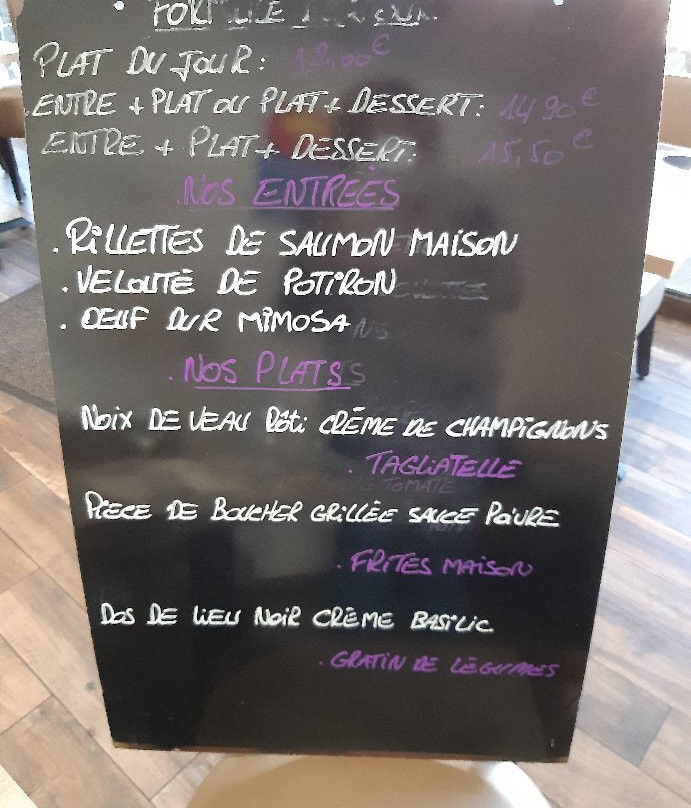 FORMULE
PLAT DU JOUR: 12,00€
ENTRE + PLAT OU PLAT + DESSERT: 14 90€
ENTRE + PLAT + DESSERT: 15,50€
. NOS ENTREES
. RILLETTES DE SAUMON MAISON
. VELOUTÉ DE POTIRON
. OEUF DUR MIMOSA
. NOS PLATS
NOIX DE VEAU RÔTI CRÈME DE CHAMPIGNONS
. TAGLIATELLE
TOMATE
PIECE DE BOUCHER GRILLÉE SAUCE POIVRE
. FRITES MAISON
DOS DE LIEU NOIR CRÈME BASILIC
. GRATIN DE LÉGUMES